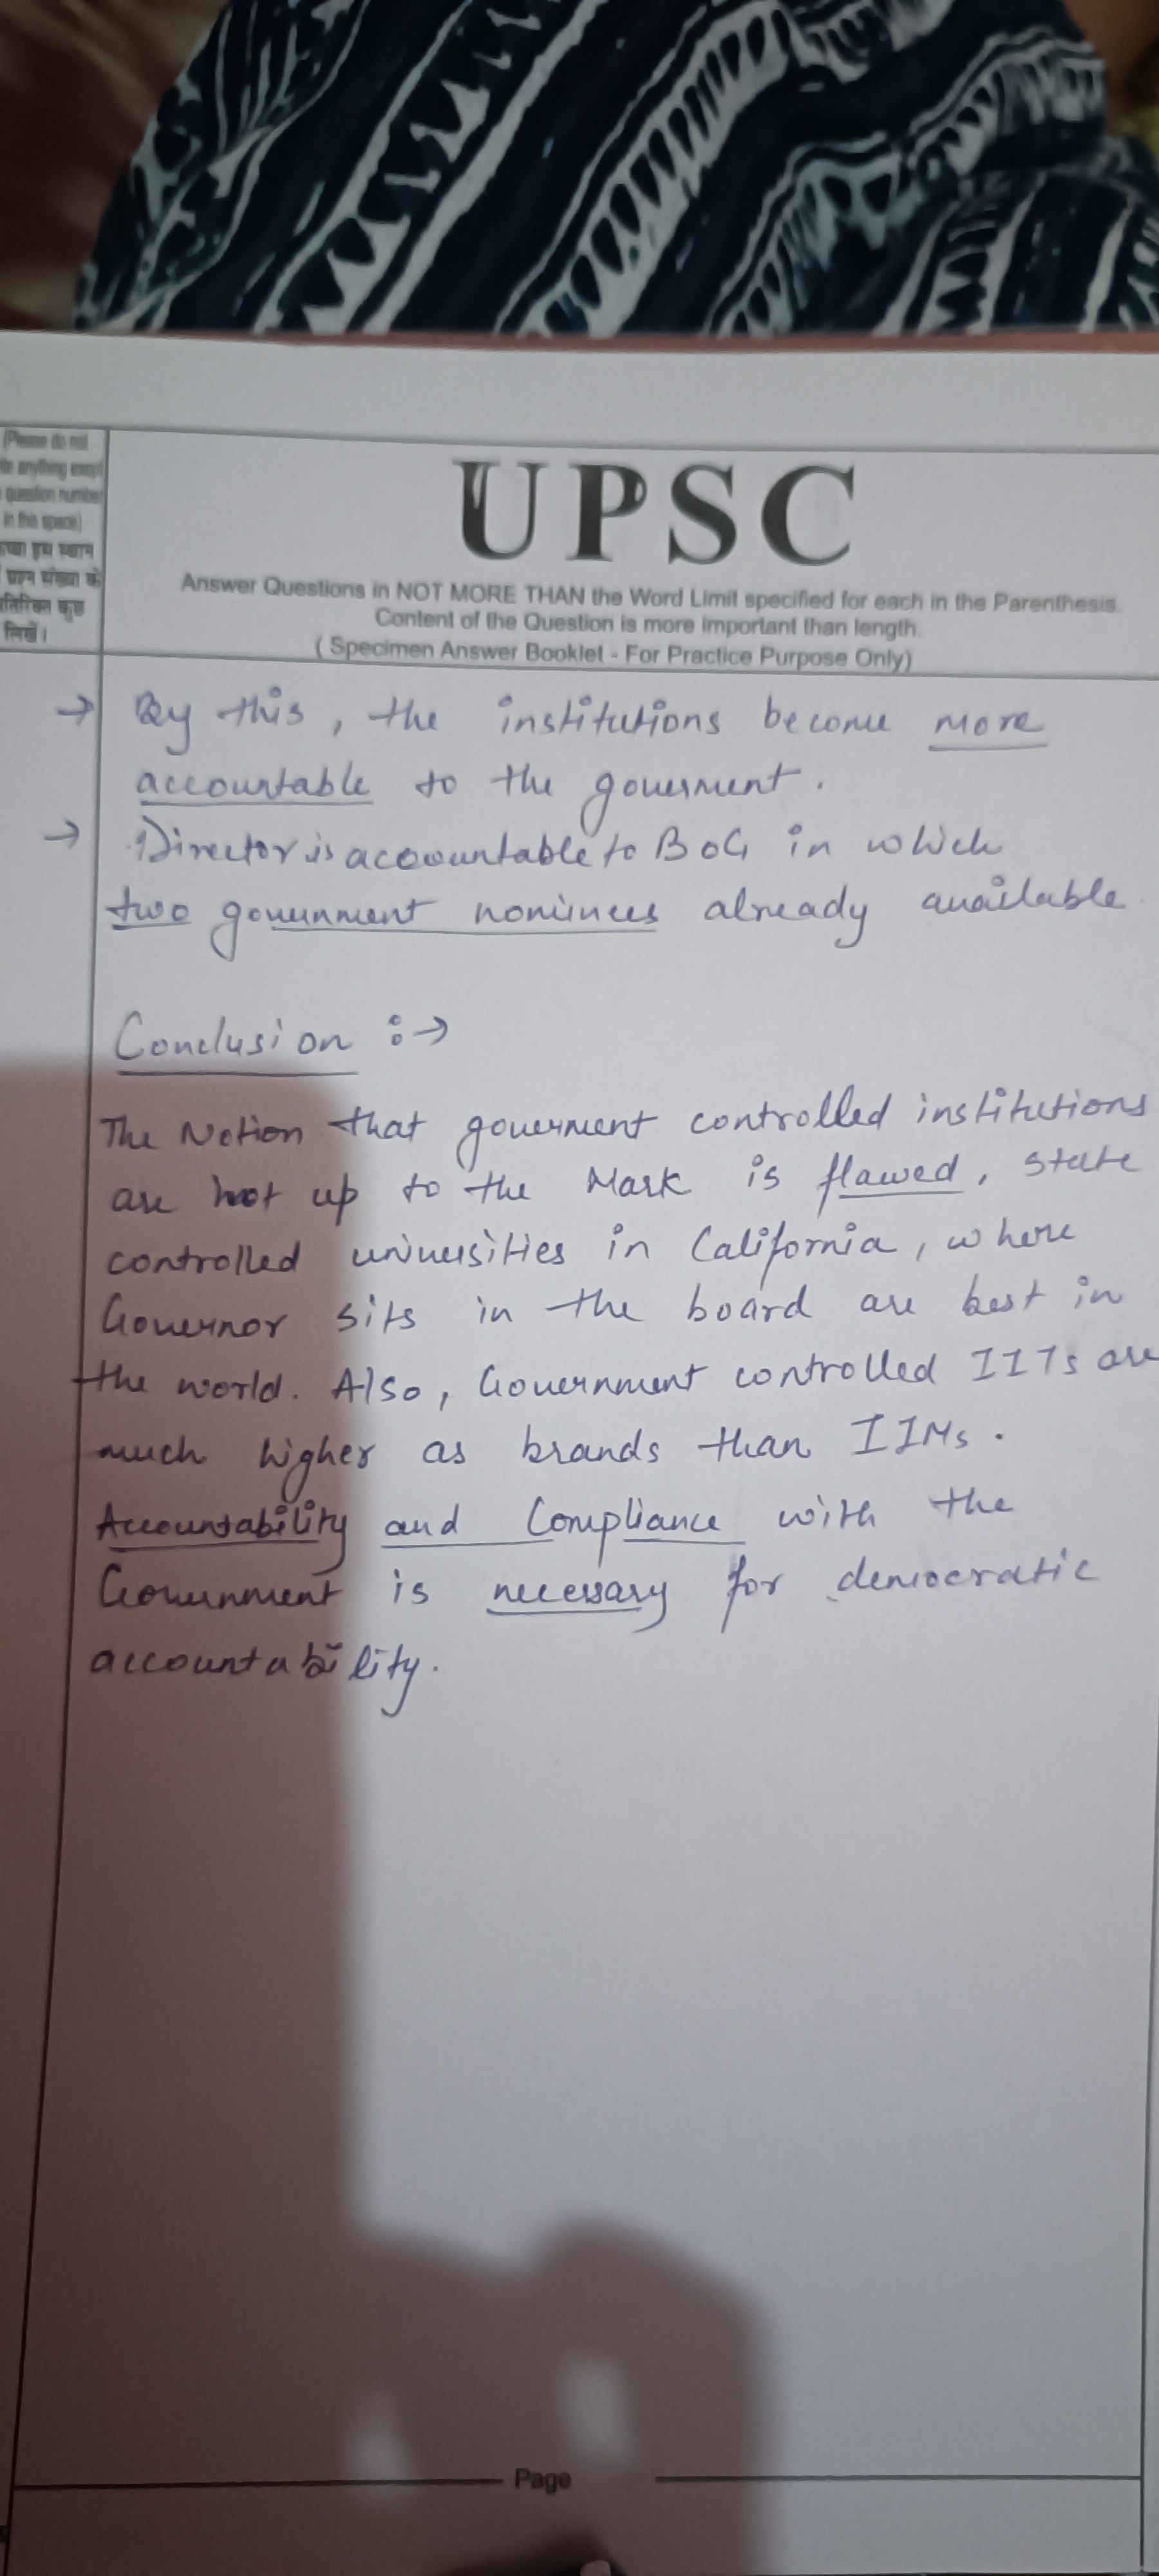 (Please do not
anything except
question number
in this space)
इस स्थान
प्रश्न संख्या के
कुछ
लिखें।
UPSC
Answer Questions in NOT MORE THAN the Word Limit specified for each in the Parenthesis.
Content of the Question is more important than length.
( Specimen Answer Booklet - For Practice Purpose Only)
→ By this, the institutions become more
accountable to the government.
→ Director is accountable to BoG in which
two government nominees already available.
Conclusion :→
The Notion that government controlled institutions
are not up to the Mark is flawed, state
controlled universities in California, where
Governor sits in the board are best in
the world. Also, Government controlled IITs are
much higher as brands than IIMs.
Accountability and Compliance with the
Government is necessary for democratic
accountability.
Page